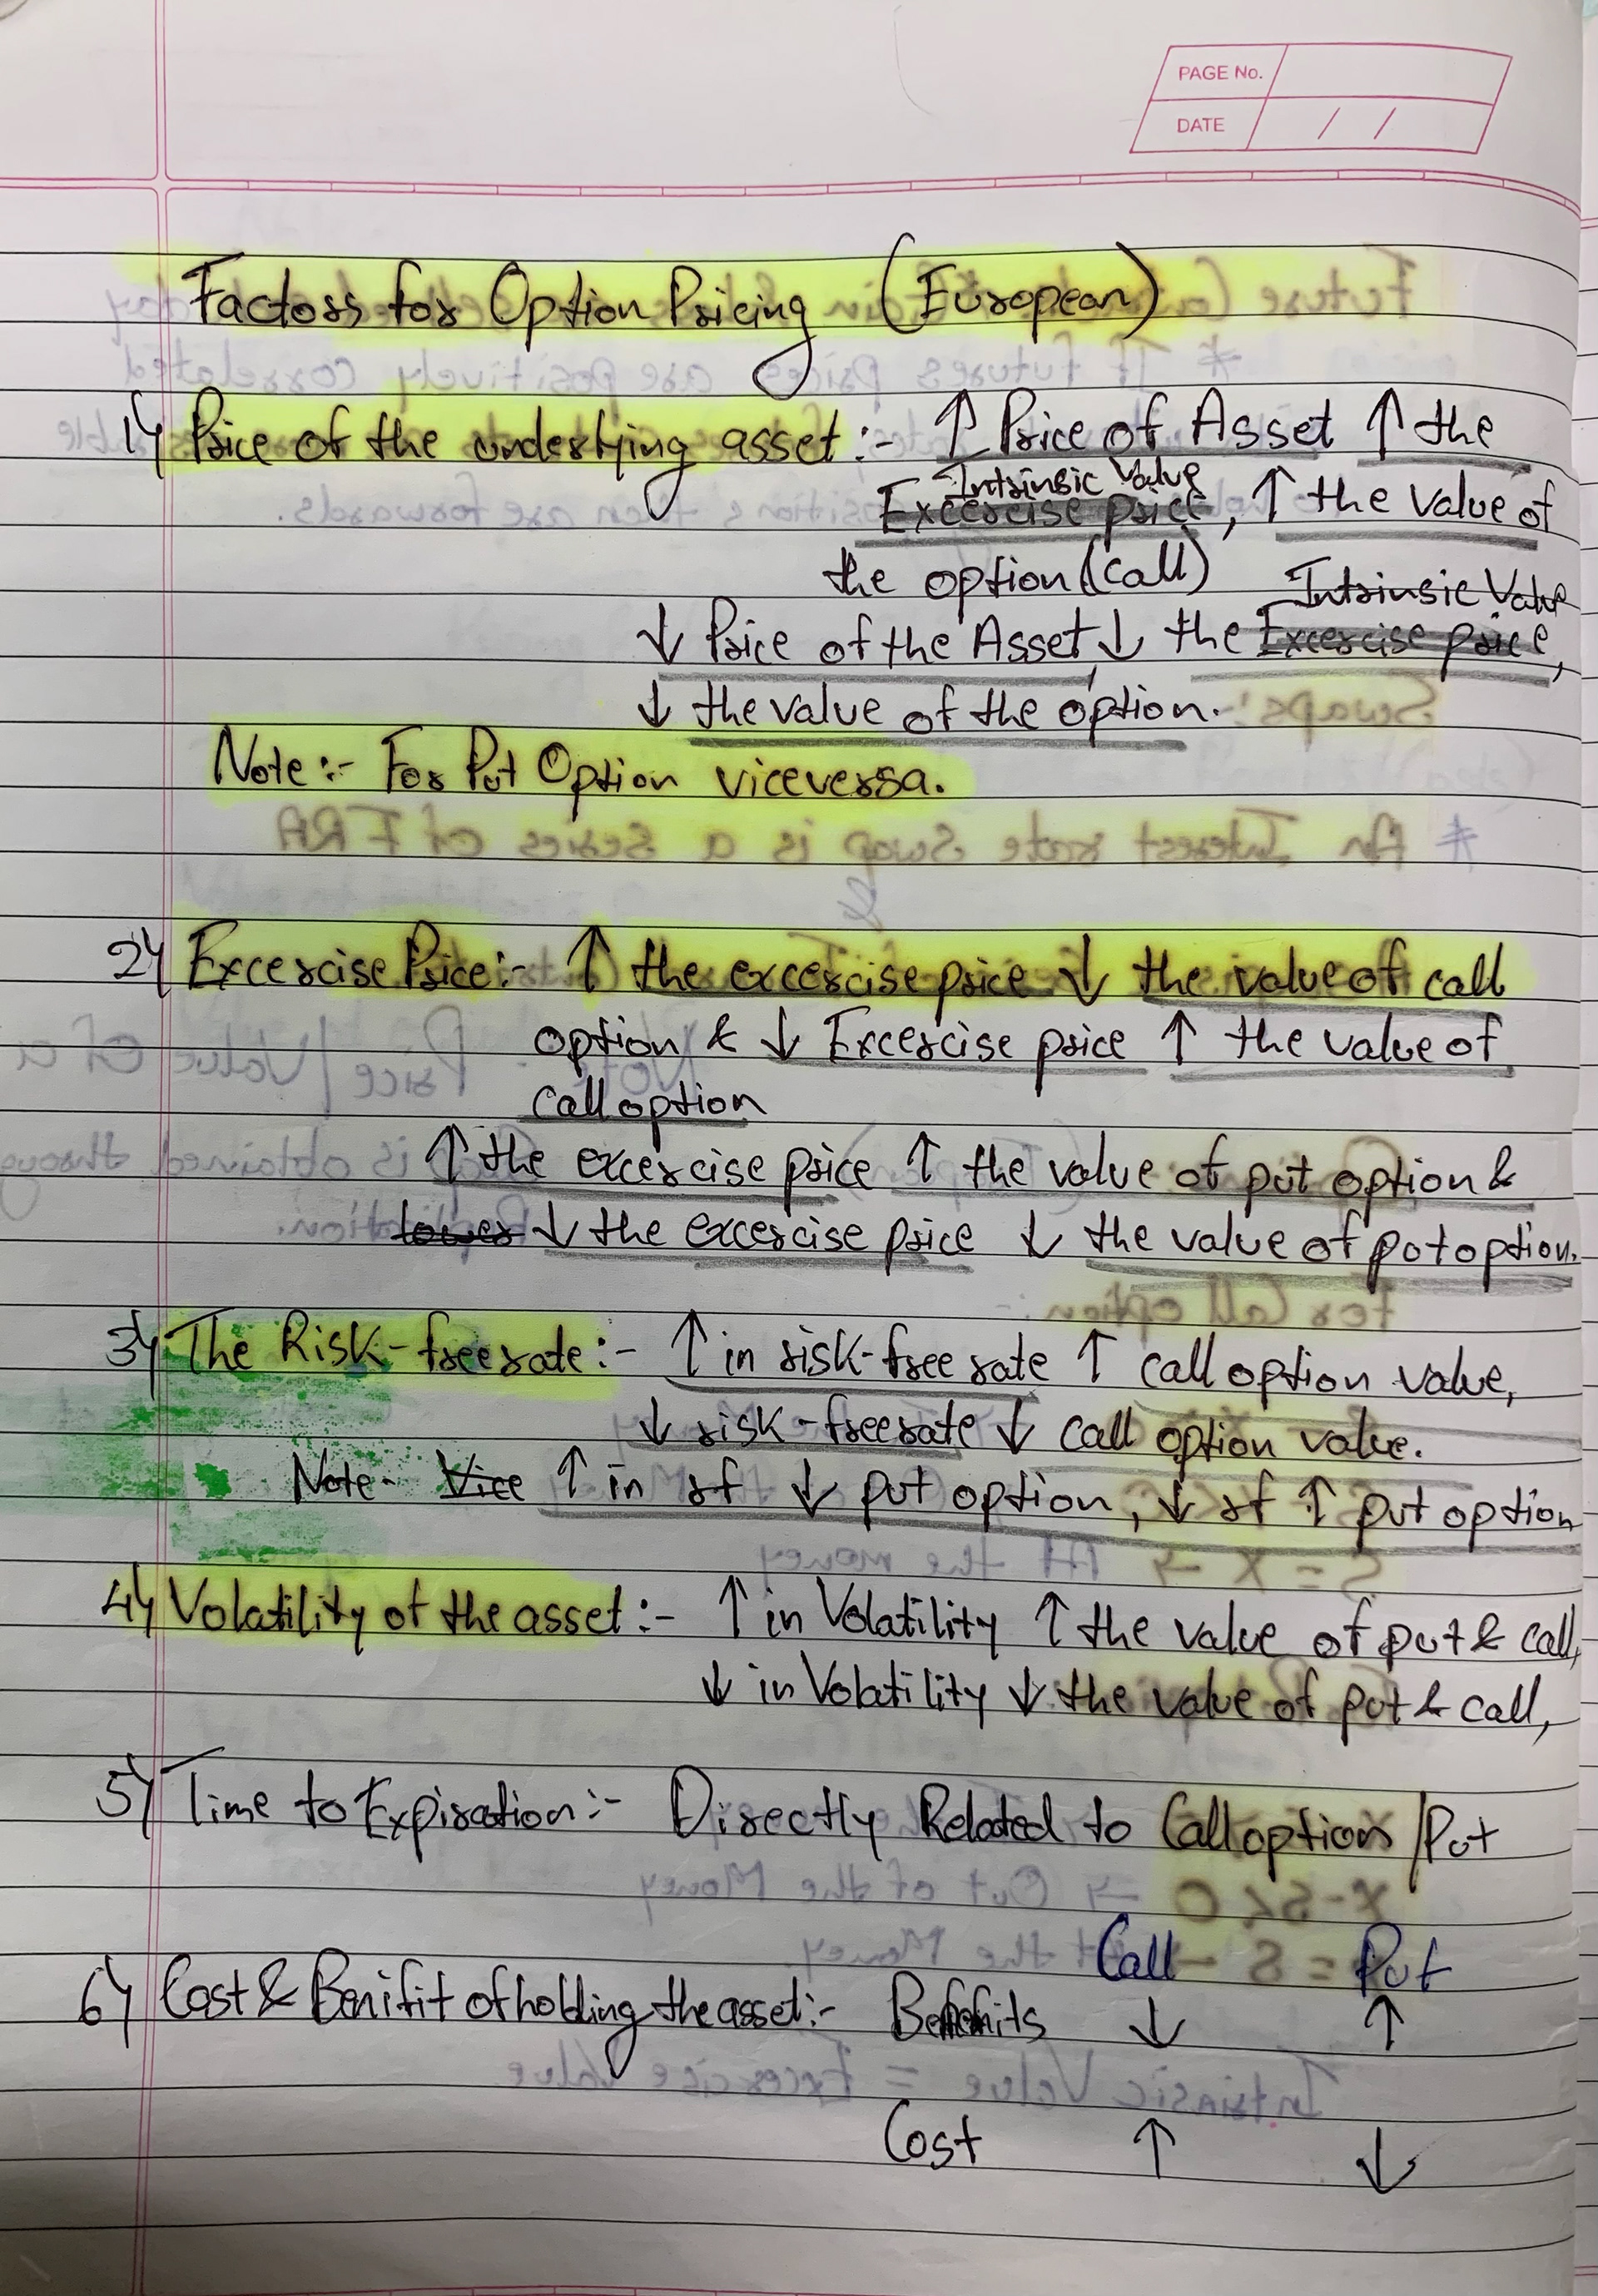 PAGE No.
DATE / /
Factors for Option Pricing (European)
1) Price of the underlying asset :- ↑ Price of Asset ↑ the
Intrinsic Value
Excercise price, ↑ the value of
the option (call)
Intrinsic Value
↓ Price of the Asset, ↓ the Excercise price,
↓ the value of the option.
Note :- For Put Option viceversa.
2) Excercise Price :- ↑ the excercise price ↓ the value of call
option & ↓ Excercise price ↑ the value of
call option
↑ the excercise price ↑ the value of put option &
lower ↓ the excercise price ↓ the value of put option.
3) The Risk-free rate :- ↑ in risk-free rate ↑ call option value,
↓ risk-free rate ↓ call option value.
Note- Vice ↑ in rf ↓ put option, ↓ rf ↑ put option
4) Volatility of the asset :- ↑ in Volatility ↑ the value of put & call,
↓ in Volatility ↓ the value of put & call,
5) Time to Expiration :- Directly Related to Call option /Put
Call Put
6) Cost & Benifit of holding the asset :- Benefits ↓ ↑
Cost ↑ ↓